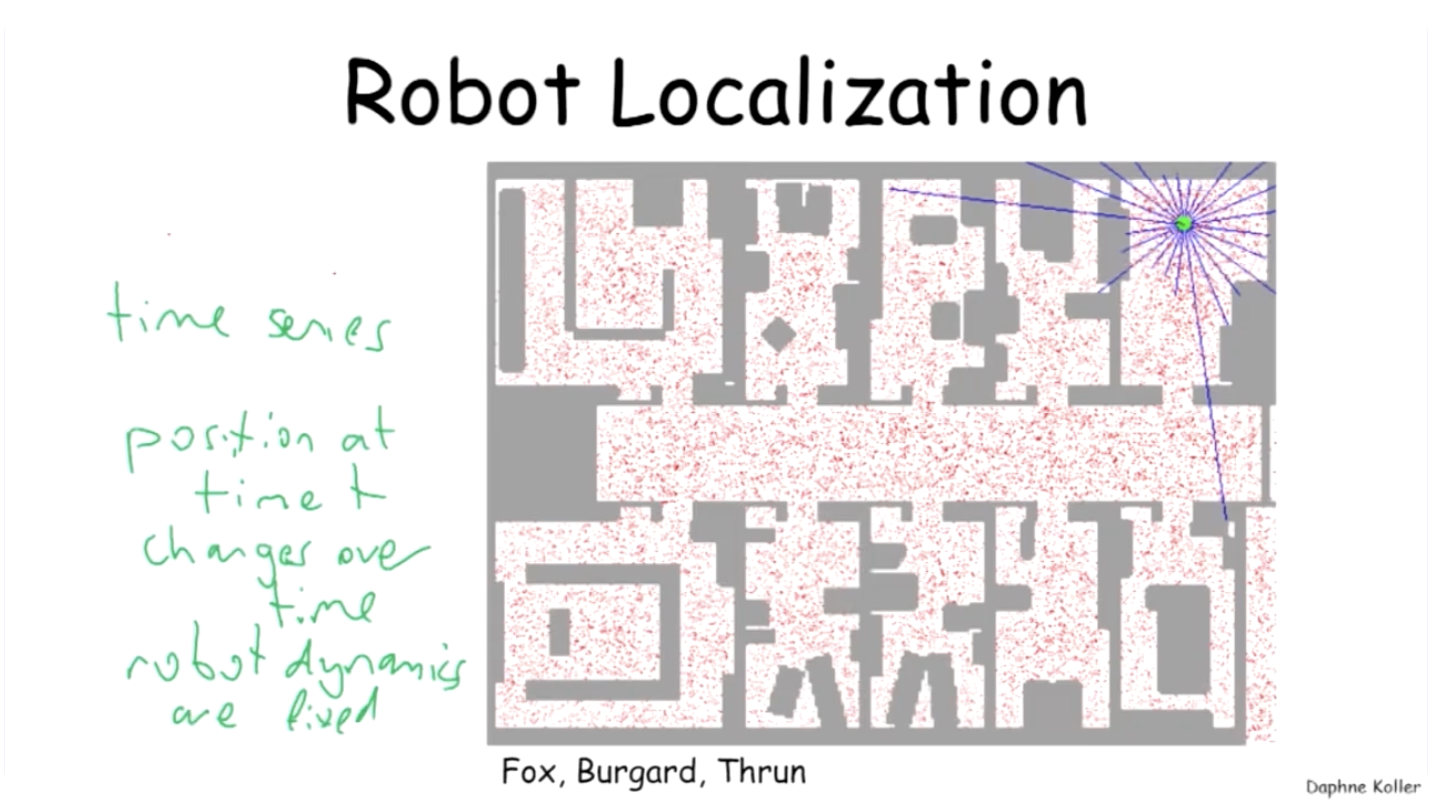 Robot Localization
time series
position at
time t
changes over
time
robot dynamics
are fixed
Fox, Burgard, Thrun
Daphne Koller